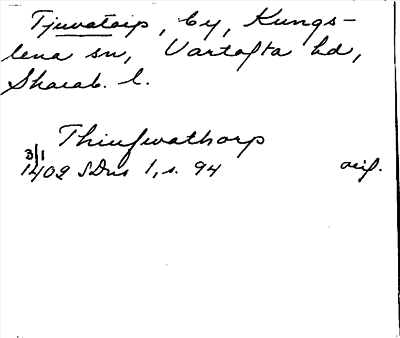 Tjuvatorp, by, Kungs-
lena sn, Vartofta hd,
Skarab. l.
Thiufwathorp
3/1
1402 SDns 1, s. 94 orig.